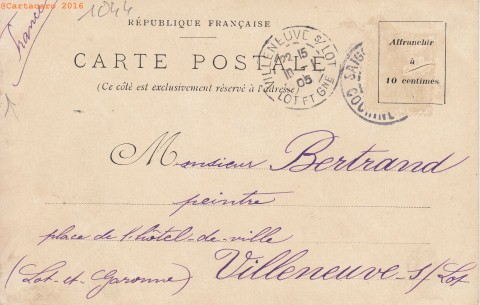 @Cartacaro 2016
1044
France
RÉPUBLIQUE FRANÇAISE
CARTE POSTALE
(Ce côté est exclusivement réservé à l'adresse
VILLENEUVE S/LOT
22-15
05
LOT ET GNE
SAIG
COCHINE
Affranchir
à
10 centimes
Monsieur Bertrand
peintre
place de l'hôtel-de-ville
(Lot-et-Garonne) Villeneuve-s/Lot